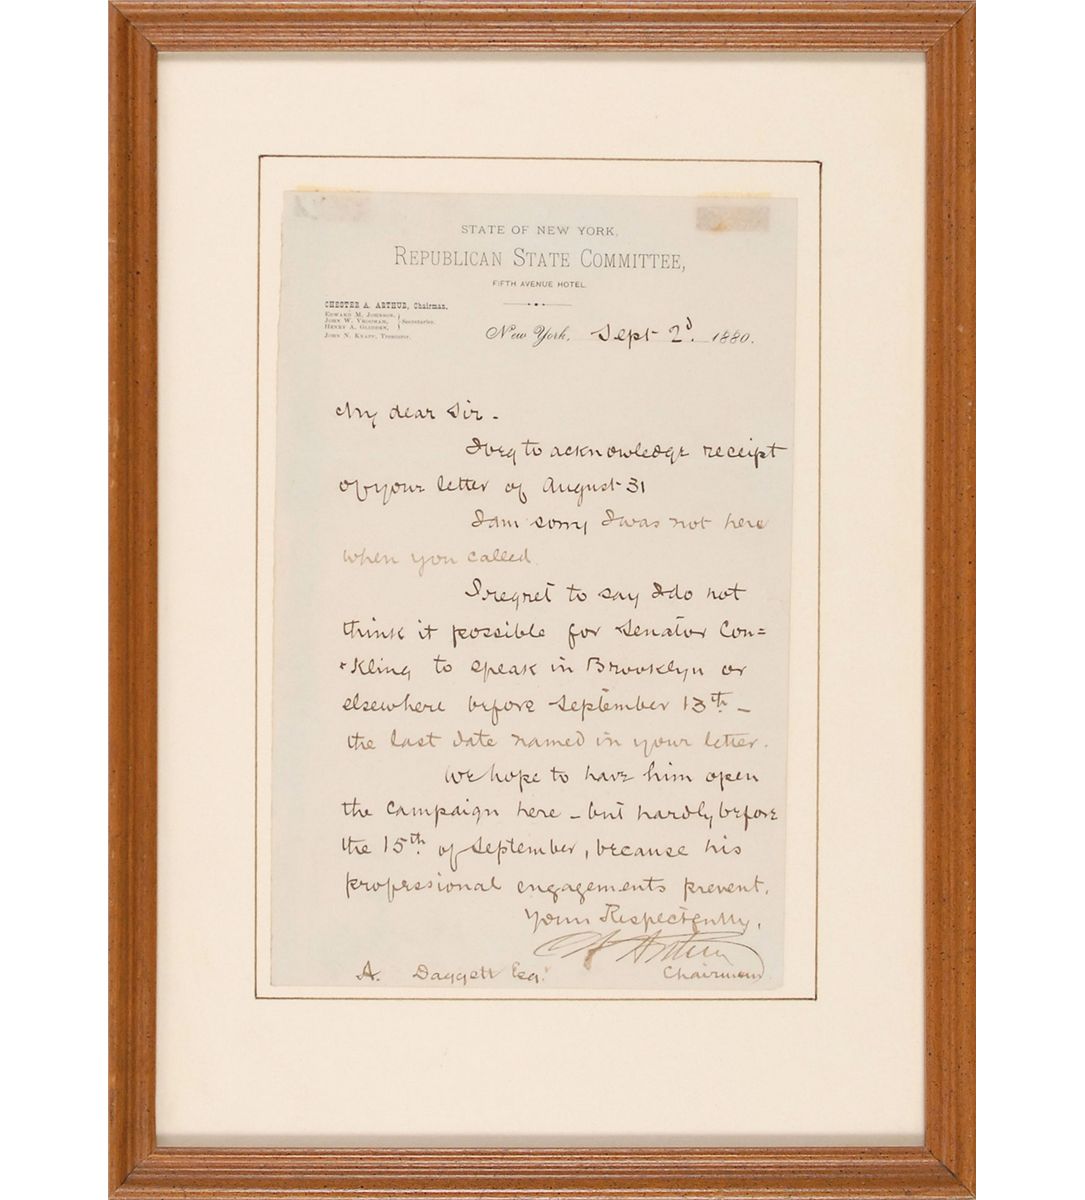 STATE OF NEW YORK.
REPUBLICAN STATE COMMITTEE,
FIFTH AVENUE HOTEL.
CHESTER A. ARTHUR, Chairman.
EDWARD M. JOHNSON,
JOHN W. VROOMAN, } Secretaries.
HENRY A. GLIDDEN,
JOHN N. KNAPP, Treasurer.
New York, Sept 2d. 1880.
My dear Sir -
I beg to acknowledge receipt
of your letter of August 31
I am sorry I was not here
when you called.
I regret to say I do not
think it possible for Senator Con=
-kling to speak in Brooklyn or
elsewhere before September 13th. -
the last date named in your letter.
We hope to have him open
the campaign here - but hardly before
the 15th. of September, because his
professional engagements prevent.
Yours Respectfully,
C A Arthur
Chairman
A. Daggett Esqr